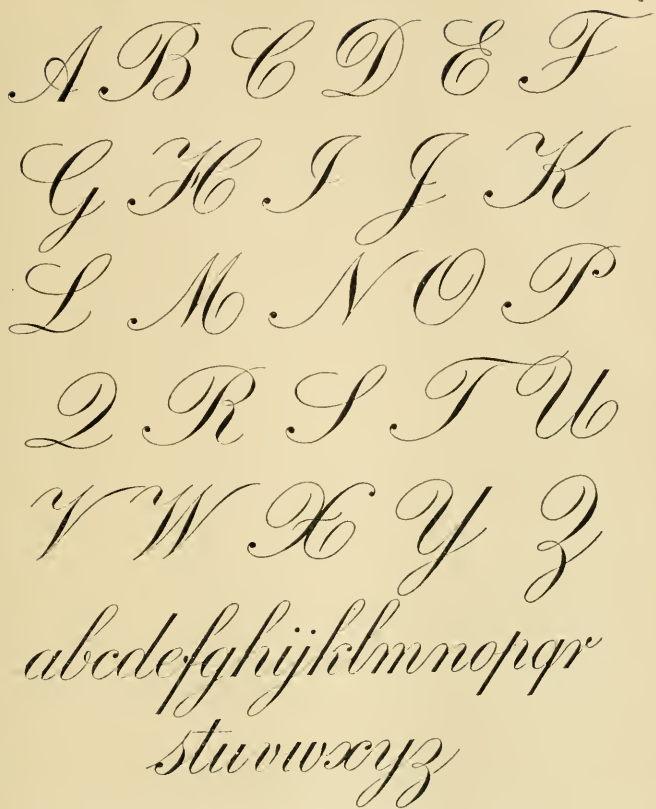 A B C D E F
G H I J K
L M N O P
Q R S T U
V W X Y Z
abcdefghijklmnopqr
stuvwxyz